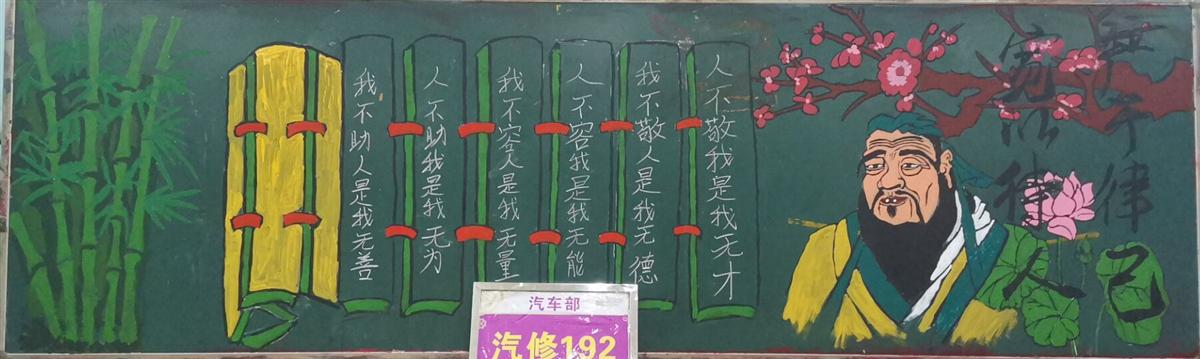 严于律己
宽以待人
人不敬我是我无才
我不敬人是我无德
人不容我是我无能
我不容人是我无量
人不助我是我无为
我不助人是我无善
汽车部
汽修192